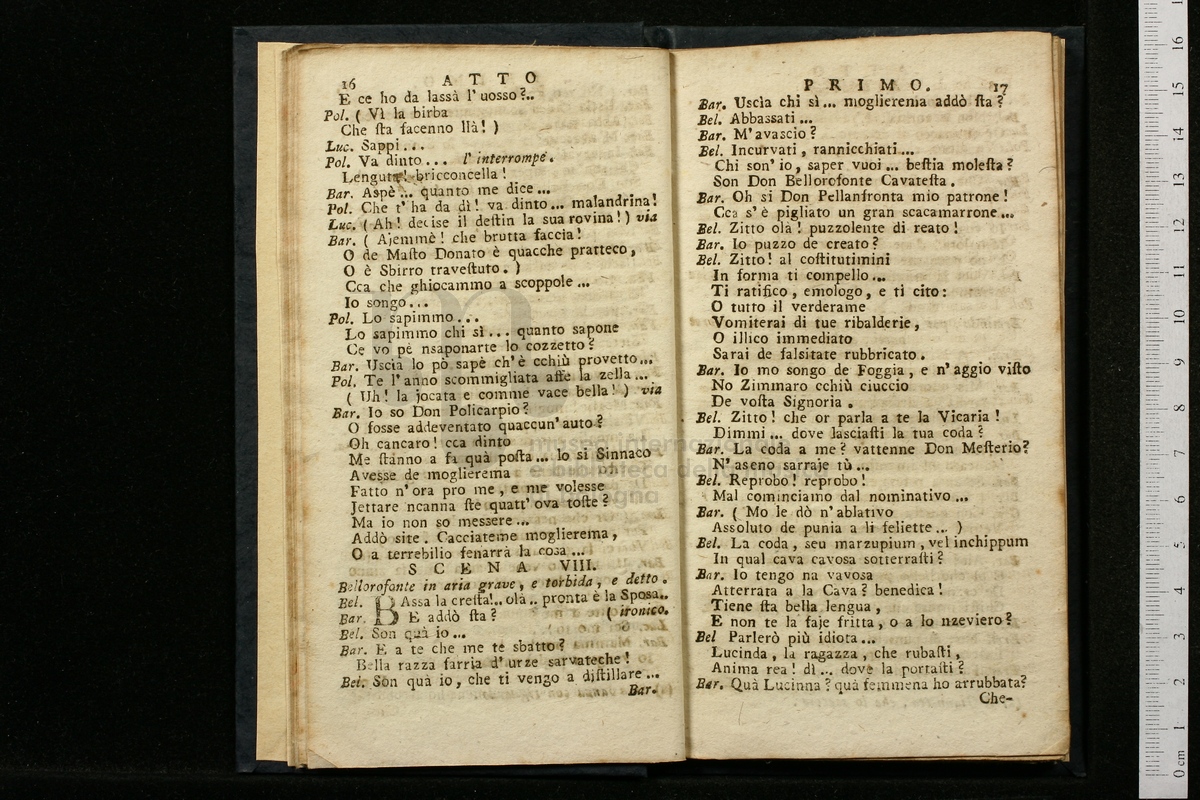 16 ATTO
E ce ho da lassà l'uosso?..
Pol. ( Vì la birba
Che ſta facenno llà! )
Luc. Sappi...
Pol. Va dinto... l'interrompe.
Lengutа! bricconcella!
Bar. Aspè... quanto me dice...
Pol. Che t'ha da dì! va dinto... malandrina!
Luc. ( Ah! decise il deſtin la sua rovina! ) via
Bar. ( Ajemmè! che brutta faccia!
O de Maſto Donato è quacche pratteco,
O è Sbirro traveſtuto. )
Cca che ghiocammo a scoppole...
Io songo...
Pol. Lo sapimmo...
Lo sapimmo chi sì... quanto sapone
Ce vo pe nsaponarte lo cozzetto?
Bar. Uscià lo pò sapè ch'è cchiù provetto...
Pol. Te l'anno scommigliata affè la zella...
( Uh! la jocata e comme vace bella! ) via
Bar. Io so Don Policarpio?
O fosse addeventato quaccun'auto?
Oh cancaro! cca dinto
Me ſtanno a fa quà poſta... lo si Sinnaco
Avesse de moglierema
Fatto n'ora pro me, e me volesse
Jettare ncanna ſte quatt'ova toſte?
Ma io non so messere...
Addò site. Cacciateme moglierema,
O a terrebilio fenarrà la cosa...
SCENA VIII.
Bellorofonte in aria grave, e torbida, e detto.
Bel. BAssa la creſta!.. olà.. pronta è la Sposa..
Bar. E addò ſta? ( ironico.
Bel. Son quà io...
Bar. E a te che me te sbatto?
Bella razza farria d'urze sarvateche!
Bel. Son quà io, che ti vengo a diſtillare...
Bar.
PRIMO. 17
Bar. Uscia chi sì... moglierema addò ſta?
Bel. Abbassati...
Bar. M'avascio?
Bel. Incurvati, rannicchiati...
Chi son'io, saper vuoi... beſtia moleſta?
Son Don Bellorofonte Cavateſta.
Bar. Oh si Don Pellanfronta mio patrone!
Cca s'è pigliato un gran scacamarrone...
Bel. Zitto olà! puzzolente di reato!
Bar. Io puzzo de creato?
Bel. Zitto! al coſtitutimini
In forma ti compello...
Ti ratifico, emologo, e ti cito:
O tutto il verderame
Vomiterai di tue ribalderie,
O illico immediato
Sarai de falsitate rubbricato.
Bar. Io mo songo de Foggia, e n'aggio viſto
No Zimmaro cchiù ciuccio
De voſta Signoria.
Bel. Zitto! che or parla a te la Vicaria!
Dimmi... dove lasciaſti la tua coda?
Bar. La coda a me? vattenne Don Meſterio?
N'aseno sarraje tù...
Bel. Reprobo! reprobo!
Mal cominciamo dal nominativo...
Bar. ( Mo le dò n'ablativo
Assoluto de punia a li feliette... )
Bel. La coda, seu marzupium, vel inchippum
In qual cava cavosa sotterraſti?
Bar. Io tengo na vavosa
Atterrata a la Cava? benedica!
Tiene ſta bella lengua,
E non te la faje fritta, o a lo nzeviero?
Bel Parlerò più idiota...
Lucinda, la ragazza, che rubaſti,
Anima rea! dì... dove la portaſti?
Bar. Quà Lucinna? quà femmena ho arrubbata?
Che-